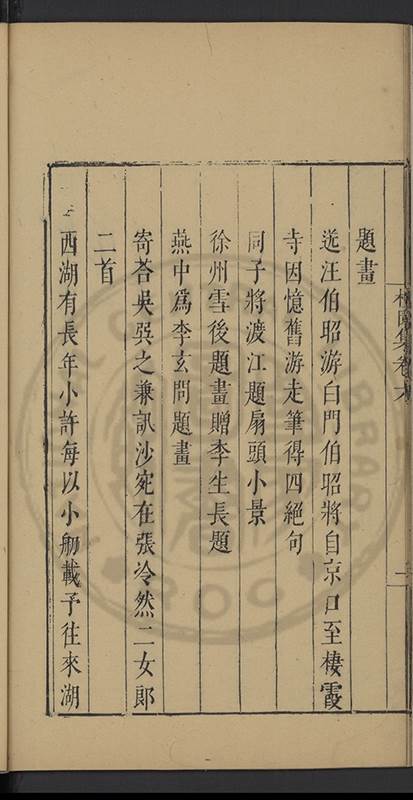 題畫
送汪伯昭游白門伯昭將自京口至棲霞
寺因憶舊游走筆得四絕句
同子將渡江題扇頭小景
徐州雪後題畫贈李生長題
燕中為李玄問題畫
寄荅吳巽之兼訊沙宛在張泠然二女郎
二首
西湖有長年小許每以小舠載予往來湖